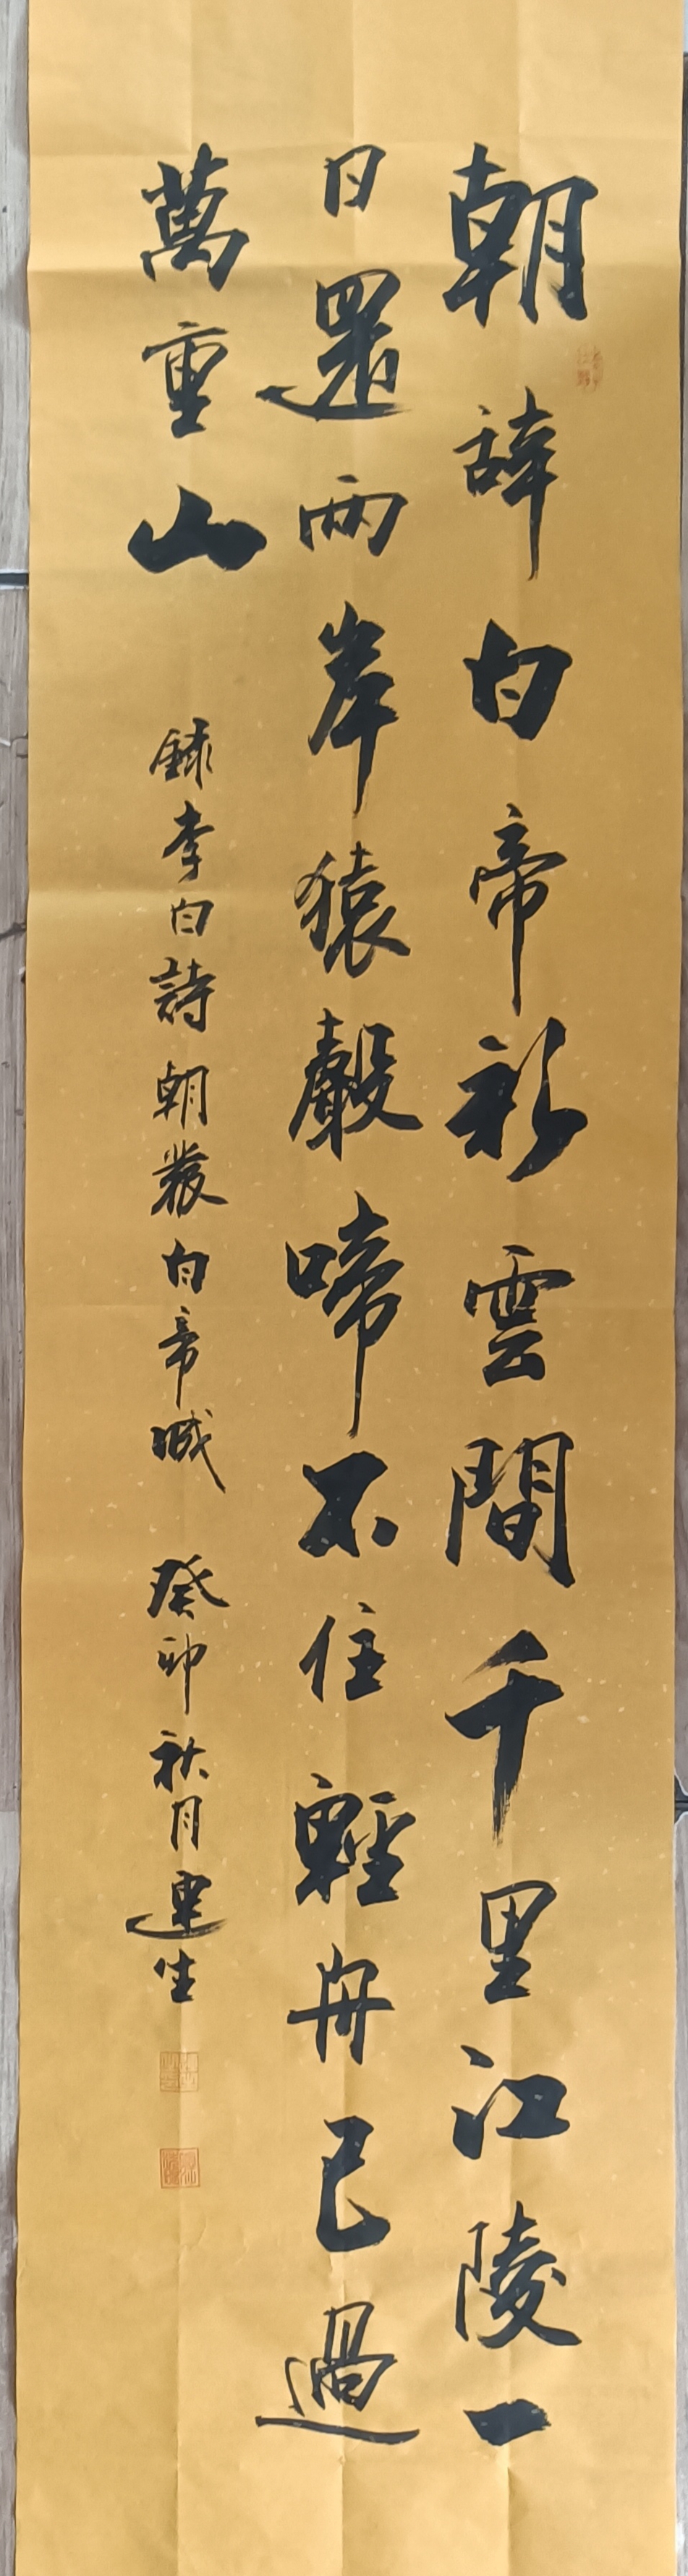 朝辞白帝彩雲間千里江陵一
日還兩岸猿聲啼不住輕舟已過
萬重山
録李白詩朝發白帝城 癸卯秋月連生